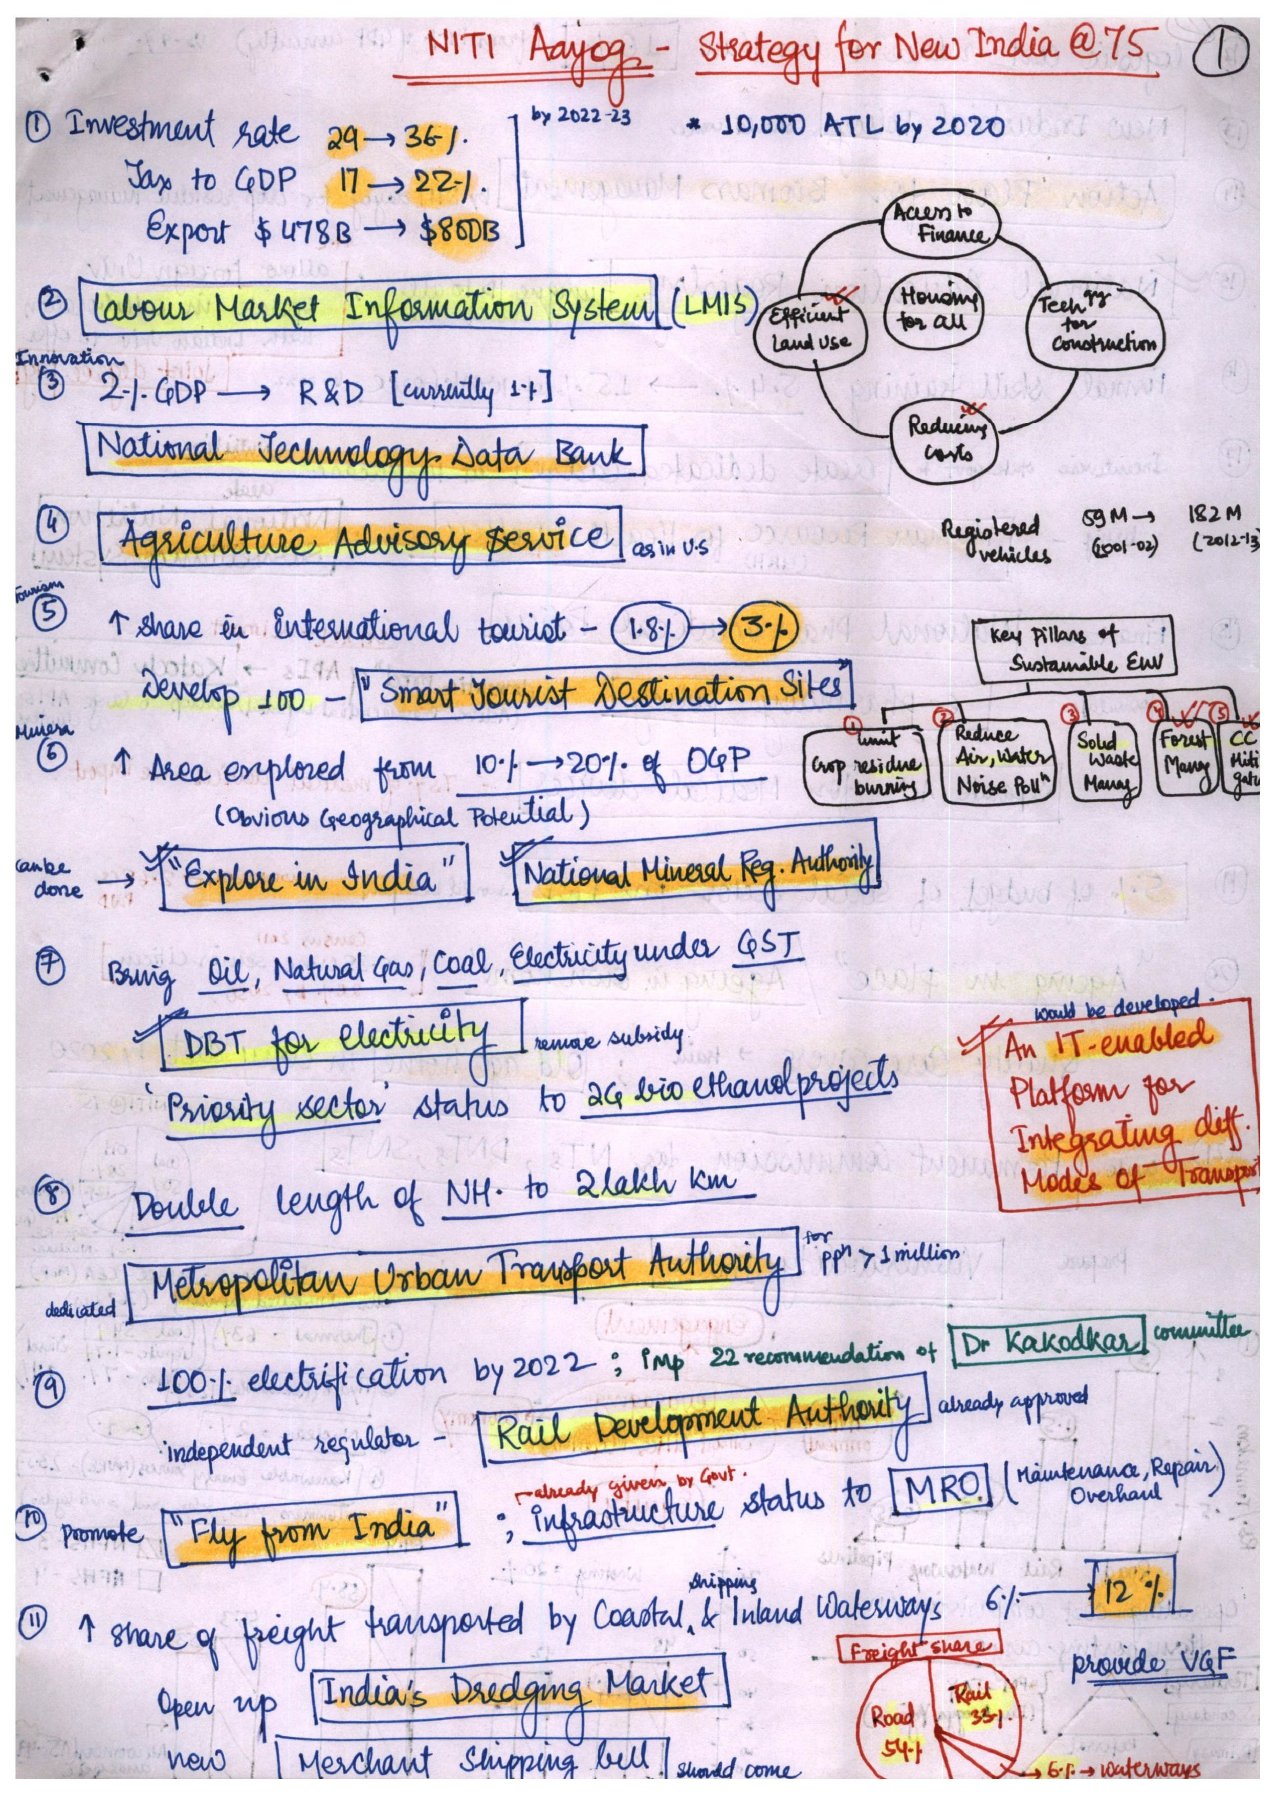 NITI Aayog - Strategy for New India @ 75
1
① Investment rate 29 → 36%.
Tax to GDP 17 → 22%.
Export $478B → $800B
by 2022-23
* 10,000 ATL by 2020
Access to Finance
Efficient Land Use
Housing for All
Techgy for construction
Reducing Costs
② Labour Market Information System (LMIS)
Innovation
③ 2% GDP → R&D [currently 1%]
National Technology Data Bank
④ Agriculture Advisory Service as in U.S
Registered vehicles
59M → 182M
(2001-02) (2012-13)
Tourism
⑤ ↑ share in international tourist - 1.8% → 3%
Develop 100 - "Smart Tourist Destination Sites"
Key Pillars of Sustainable Env
① Limit Crop residue burning
② Reduce Air, Water Noise Pollⁿ
③ Solid Waste Manag
④ Forest Manag
⑤ CC Miti gatn
Minera
⑥ ↑ Area explored from 10% → 20% of OGP
(Obvious Geographical Potential)
can be done → "Explore in India"
National Mineral Reg. Authority
⑦ Bring Oil, Natural Gas, Coal, Electricity under GST
DBT for electricity remove subsidy
'Priority sector' status to 2G bio ethanol projects
would be developed.
An IT-enabled
Platform for
Integrating diff.
Modes of Transport
⑧ Double length of NH. to 2 lakh km
dedicated Metropolitan Urban Transport Authority for ppⁿ > 1 million
⑨ 100% electrification by 2022 ; imp 22 recommendation of Dr Kakodkar committee
independent regulator - Rail Development Authority already approved
already given by Govt.
⑩ Promote "Fly from India" ; infrastructure status to MRO (Maintenance, Repair, Overhaul)
⑪ ↑ share of freight transported by Coastal shipping & Inland Waterways 6% → 12%
provide VGF
Open up India's Dredging Market
new Merchant Shipping bill should come
Freight share
Road 54%
Rail 33%
6% → waterways